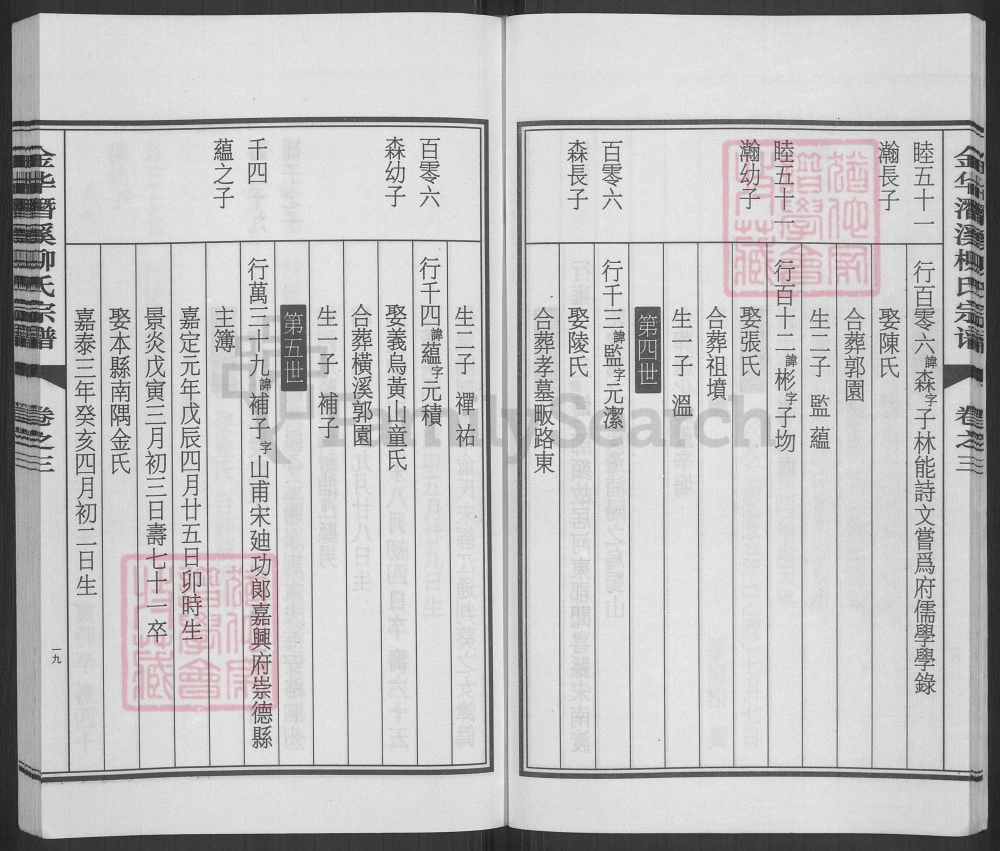 卷之三
睦五十一
瀚長子
行百零六諱森字子林能詩文嘗爲府儒學學錄
娶陳氏
合葬郭園
生二子 監 蘊
睦五十一
瀚幼子
行百十二諱彬字子㘬
娶張氏
合葬祖墳
生一子 溫
第四世
百零六
森長子
行千三諱監字元潔
娶陵氏
合葬孝墓畈路東
百零六
森幼子
生二子 禪 祐
行千四諱蘊字元積
娶義烏黃山童氏
合葬橫溪郭園
生一子 補子
第五世
千四
蘊之子
行萬三十九諱補子字山甫宋廸功郞嘉興府崇德縣
主簿
嘉定元年戊辰四月廿五日卯時生
景炎戊寅三月初三日壽七十一卒
娶本縣南隅金氏
嘉泰三年癸亥四月初二日生
一九
卷之三
FamilySearch